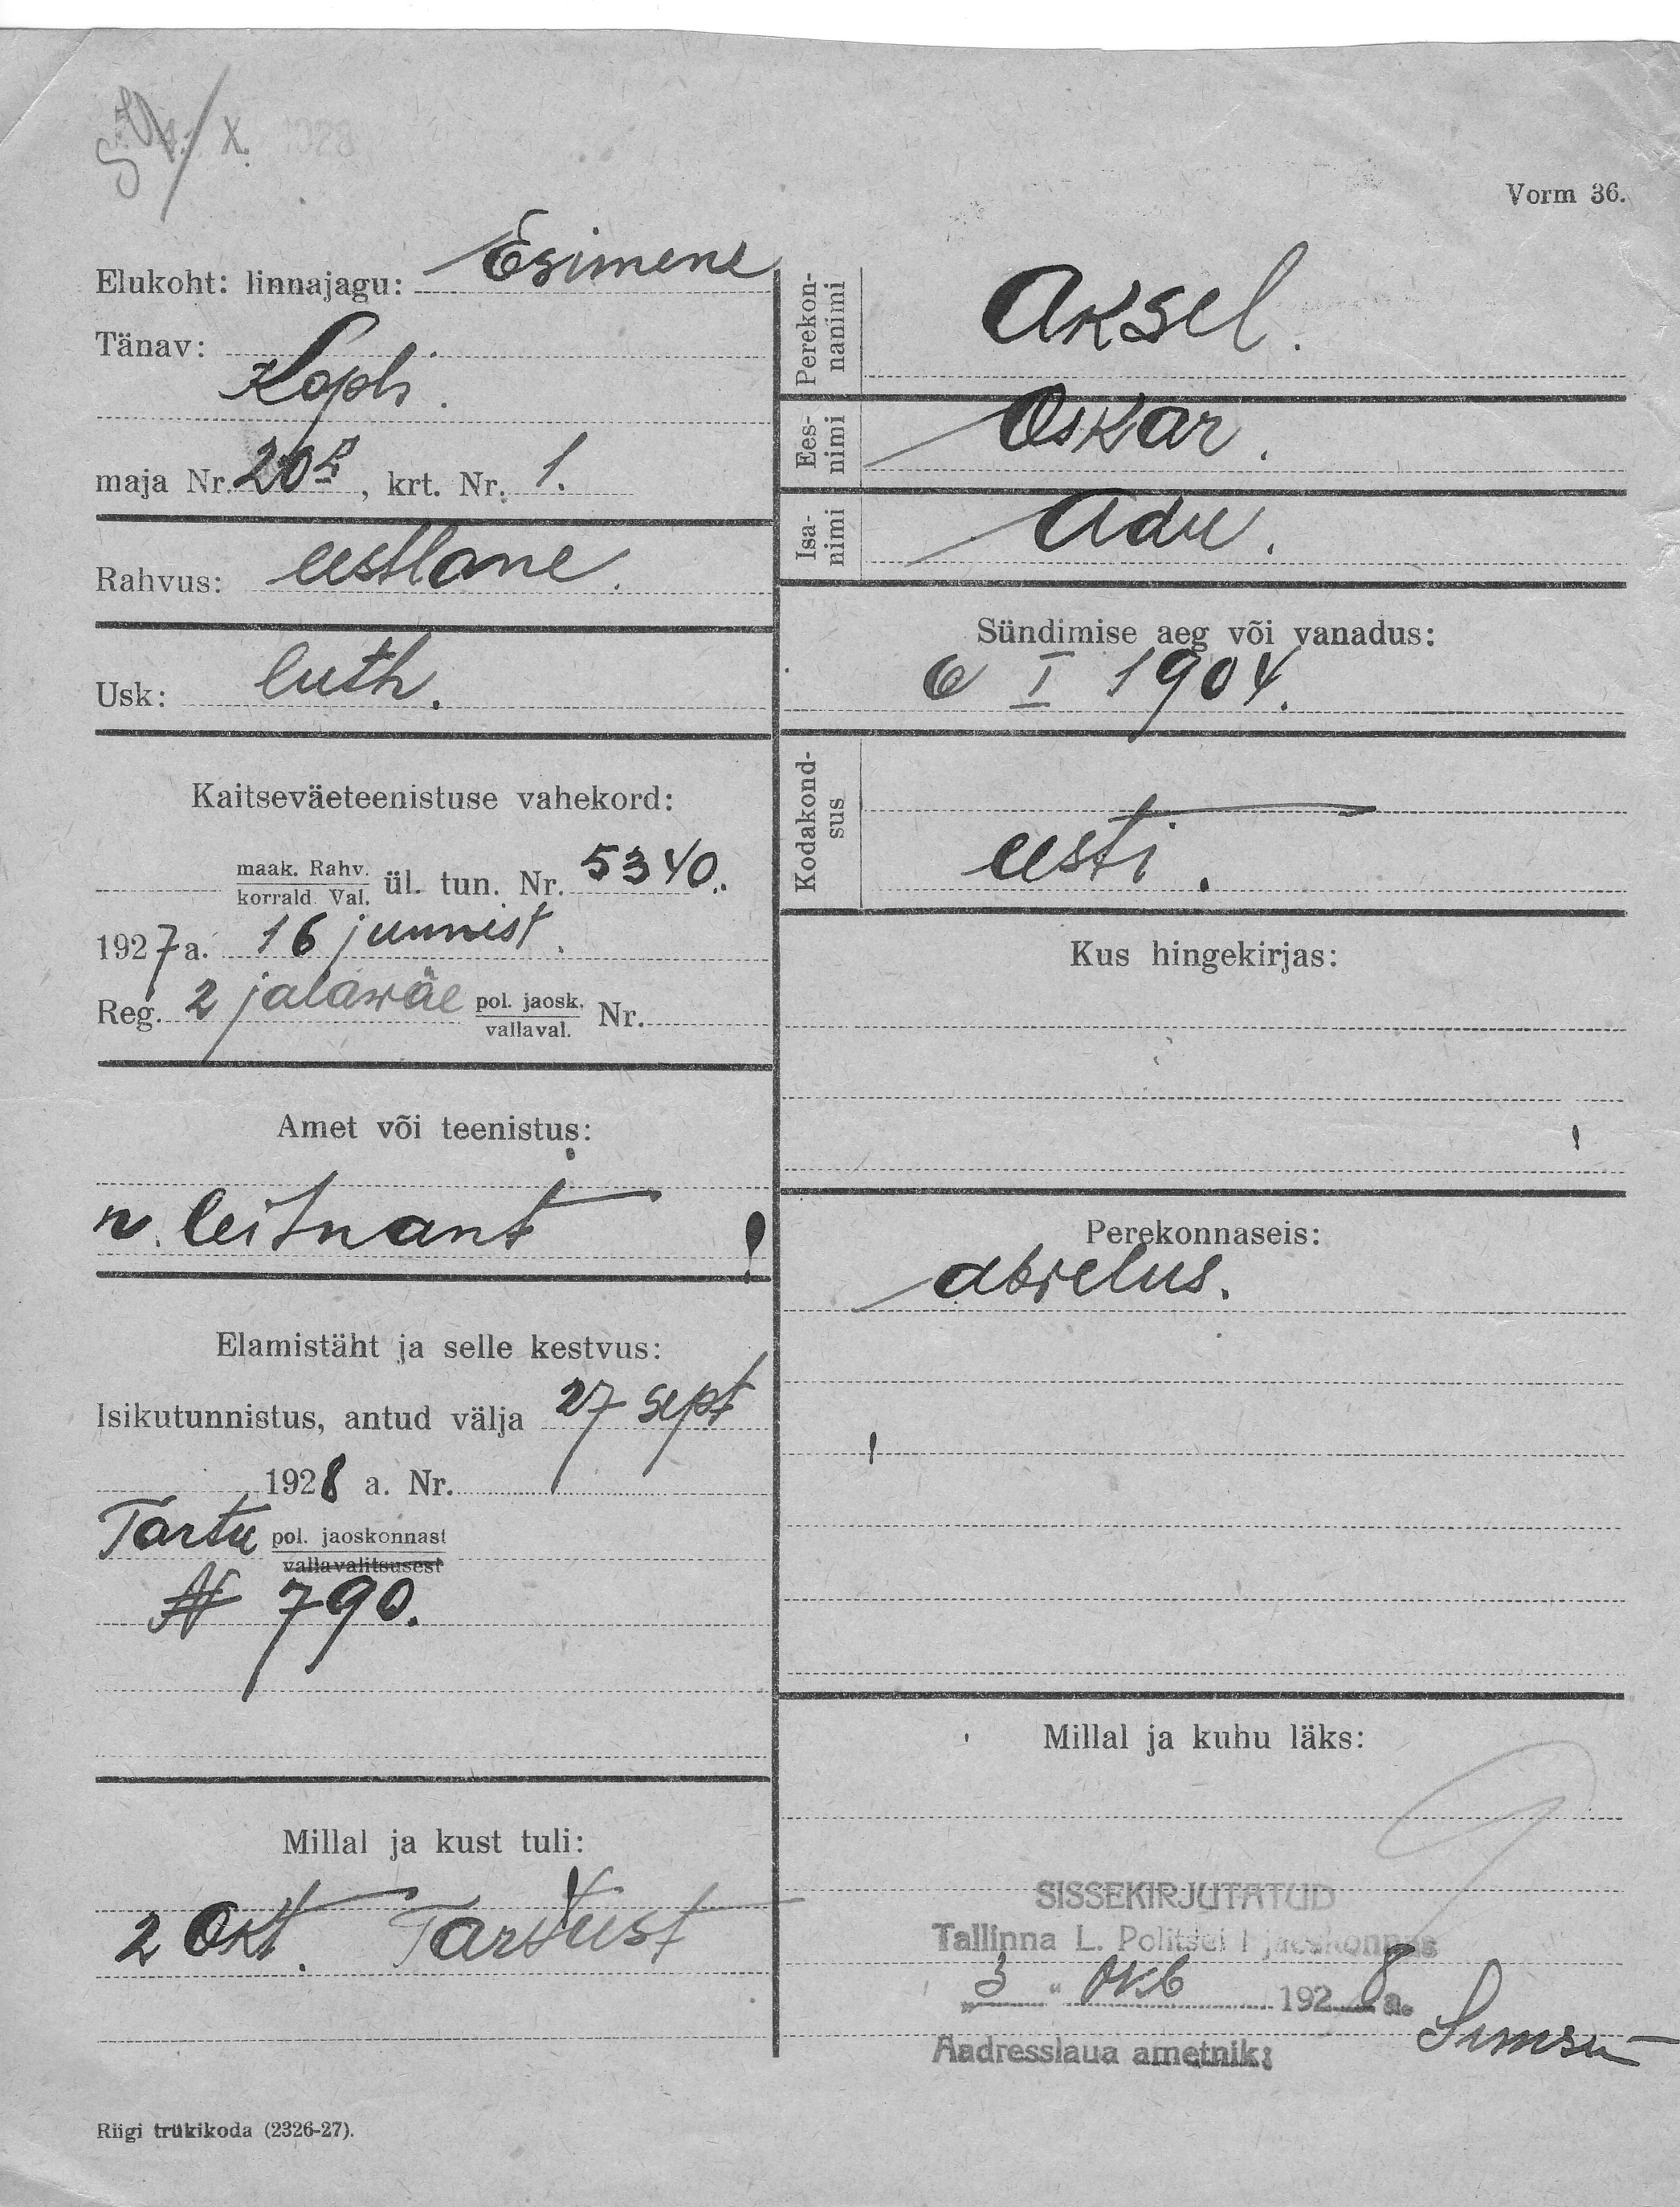 X. 1928
Vorm 36.
Elukoht: linnajagu: Esimene
Tänav:
Kopli.
maja Nr. 20 , krt. Nr. 1.
Rahvus: eestlane.
Usk: luth.
Kaitseväeteenistuse vahekord:
maak. Rahv.
korrald. Val. ül. tun. Nr. 5340.
1927 a. 16 juunist.
Reg. 2 jalawäe pol. jaosk. Nr.
vallaval.
Amet või teenistus:
n. leitnant
Elamistäht ja selle kestvus:
Isikutunnistus, antud välja 27 sept
1928 a. Nr.
Tartu pol. jaoskonnast
vallavalitsusest
N 790.
Millal ja kust tuli:
2 Okt. Tartust
Riigi trükikoda (2326-27).
Perekon-
nanimi Aksel.
Ees-
nimi Oskar.
Isa-
nimi Adu.
Sündimise aeg või vanadus:
6 I 1904.
Kodakond-
sus eesti.
Kus hingekirjas:
Perekonnaseis:
abielus.
Millal ja kuhu läks:
SISSEKIRJUTATUD
Tallinna L. Politsei I jaoskonnas
„ 3 " Okb 1928 a.
Aadresslaua ametnik: